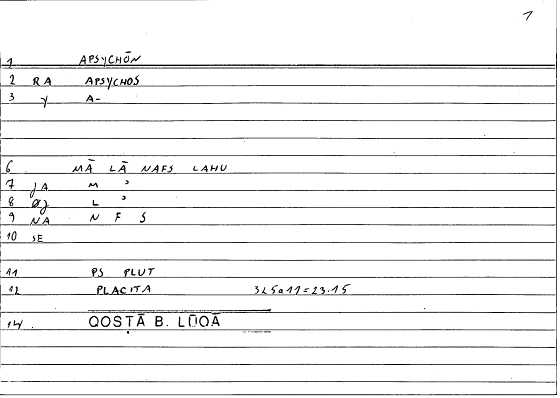 1
1 APSYCHŌN
2 RA APSYCHOS
3 y A-
6 MĀ LĀ NAFS LAHU
7 JA M ʾ
8 L ʾ
9 NA N F S
10 SE
11 PS PLUT
12 PLACITA 325a11=23.15
14. QOSṬĀ B. LŪQĀ